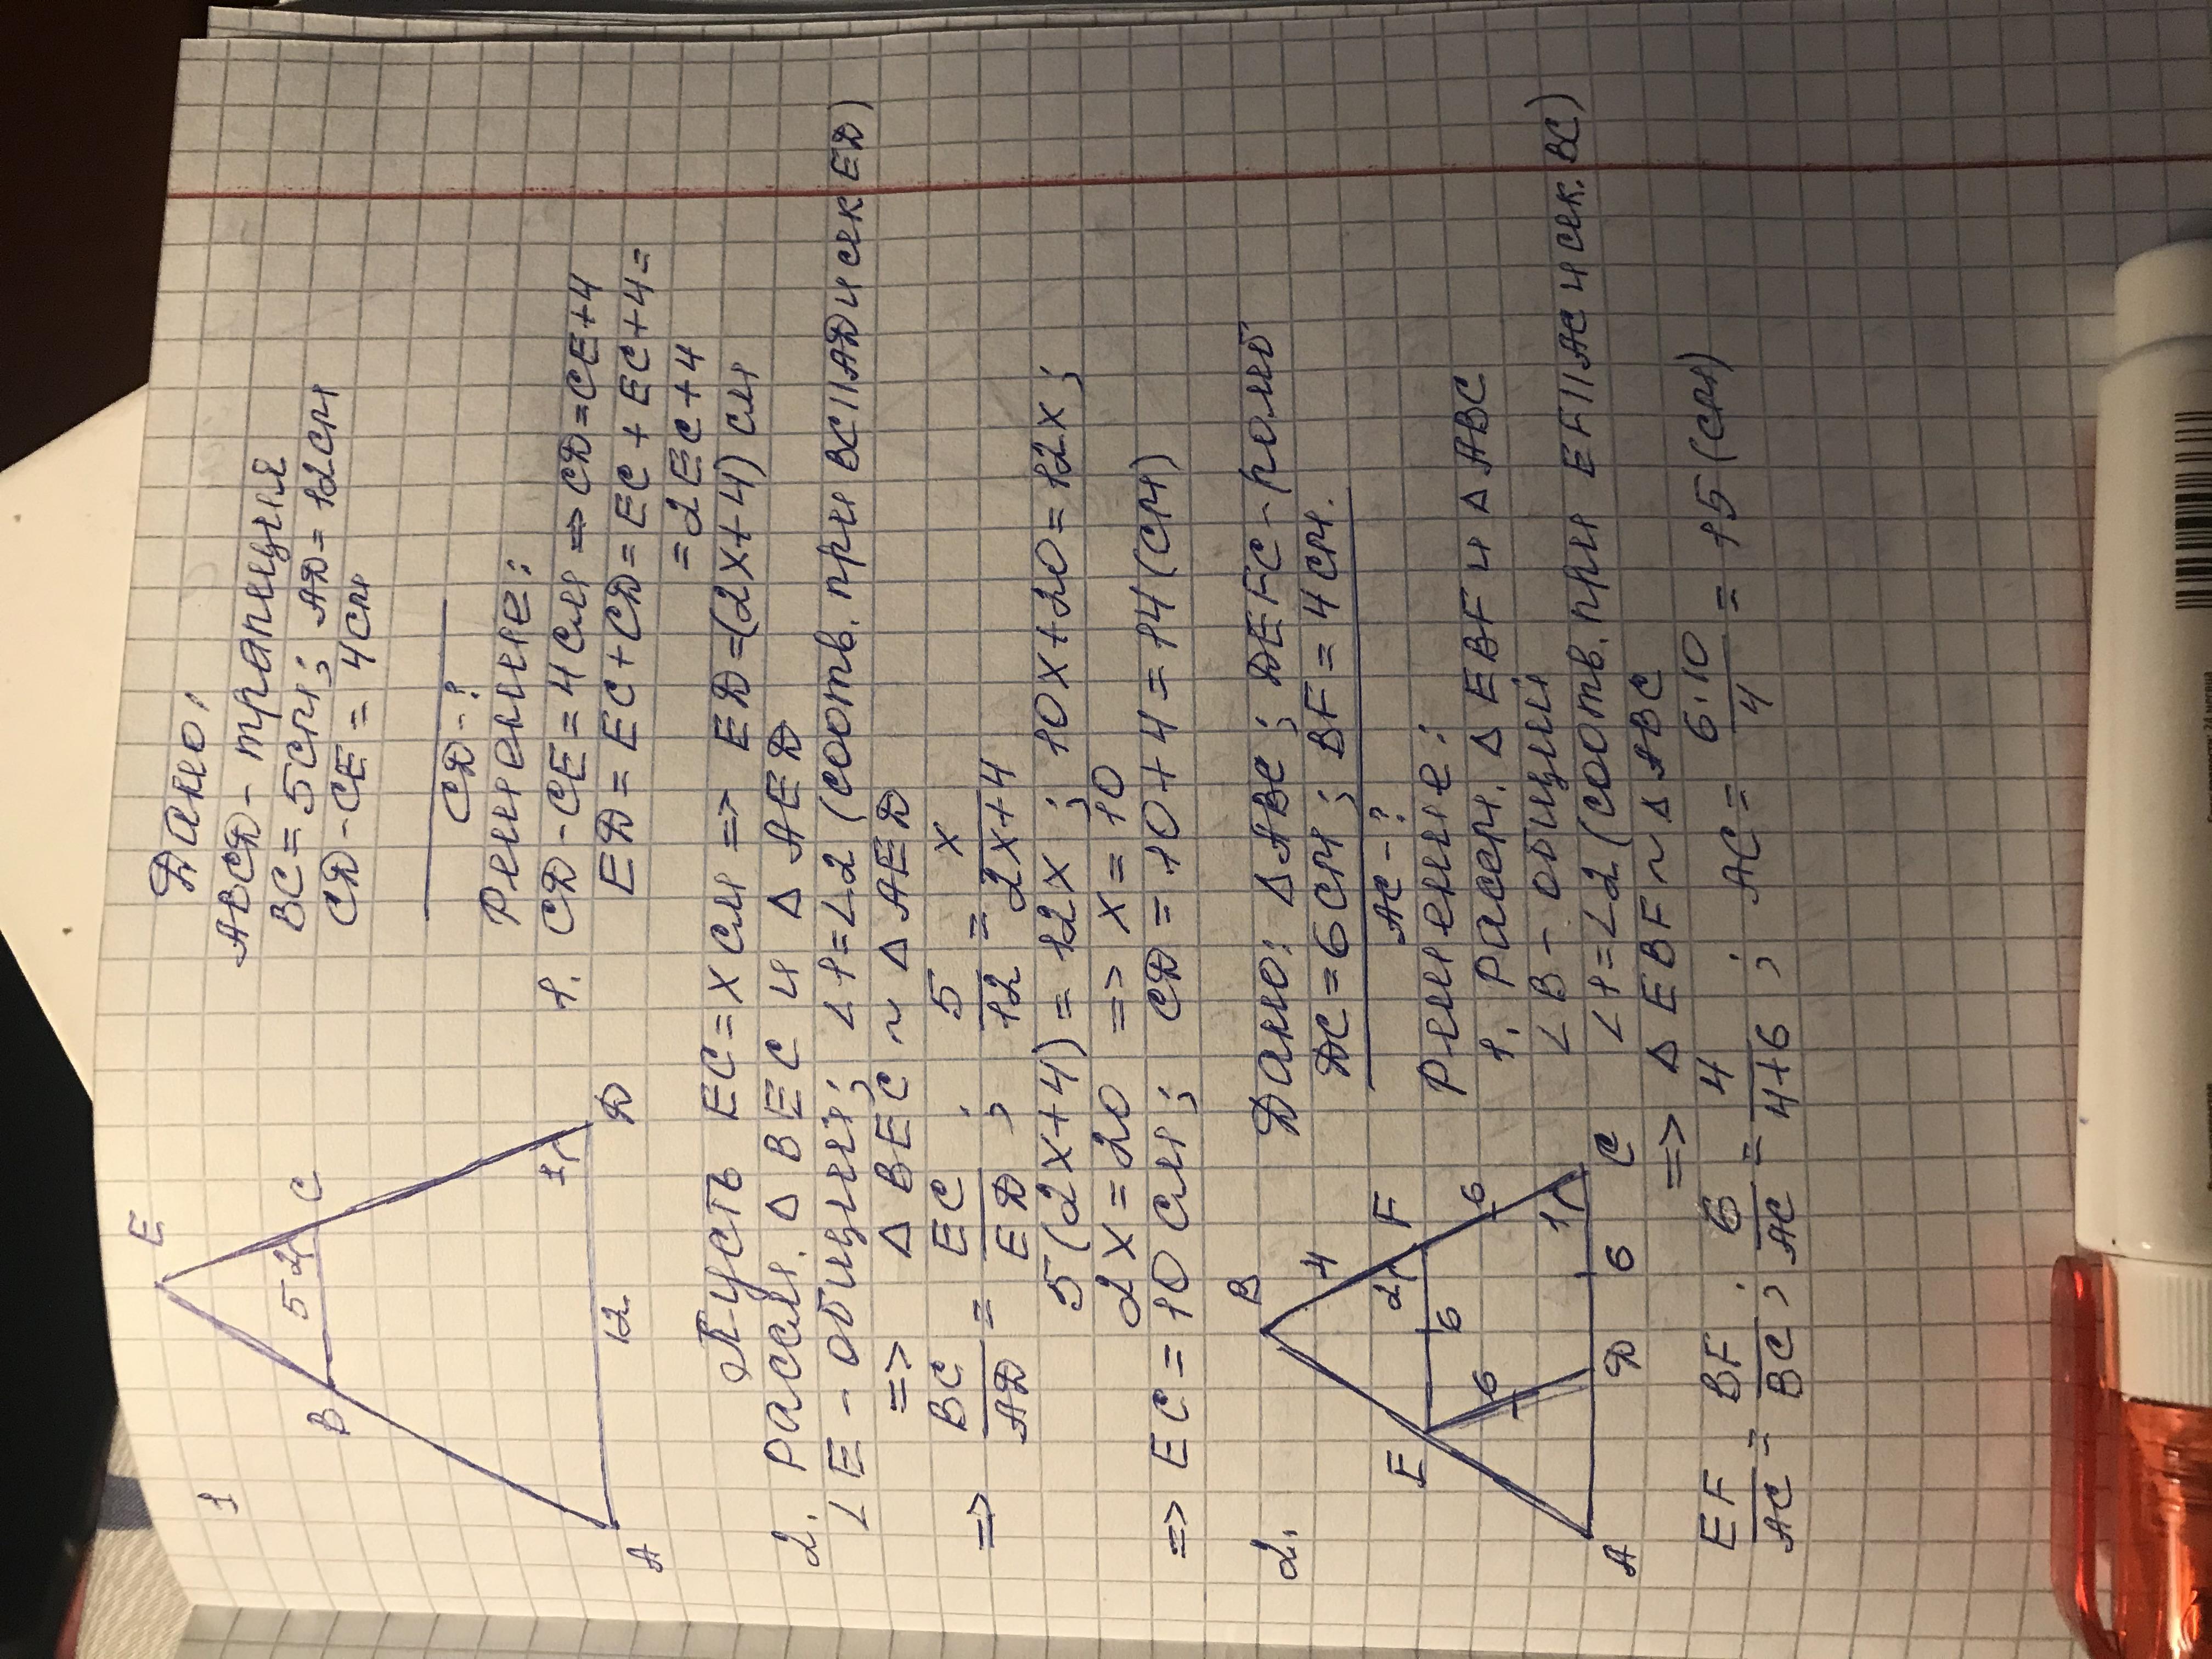 1
Дано:
ABCD - трапеция
BC = 5 см; AD = 12 см
CD - CE = 4 см
CD - ?
Решение:
1. CD - CE = 4 см => CD = CE + 4
ED = EC + CD = EC + EC + 4 =
= 2EC + 4
E
B
5
2
C
1
A
12
D
Пусть EC = x см => ED = (2x + 4) см
2. Рассм. Δ BEC и Δ AED
∠E - общий; ∠1 = ∠2 (соотв. при BC || AD и сек ED)
=> Δ BEC ~ Δ AED
=> BC/AD = EC/ED ; 5/12 = x/2x+4
5(2x+4) = 12x ; 10x + 20 = 12x ;
2x = 20 => x = 10
=> EC = 10 см ; CD = 10 + 4 = 14 (см)
2. Дано: Δ ABC ; DEFC - ромб
DC = 6 см ; BF = 4 см.
AC - ?
Решение:
B
4
E
2
F
6
6
6
1
A
D
6
C
1. Рассм. Δ EBF и Δ ABC
∠ B - общий
∠1 = ∠2 (соотв. при EF || AC и сек. BC)
=> Δ EBF ~ Δ ABC
EF/AC = BF/BC ; 6/AC = 4/4+6 ; AC = 6·10/4 = 15 (см)